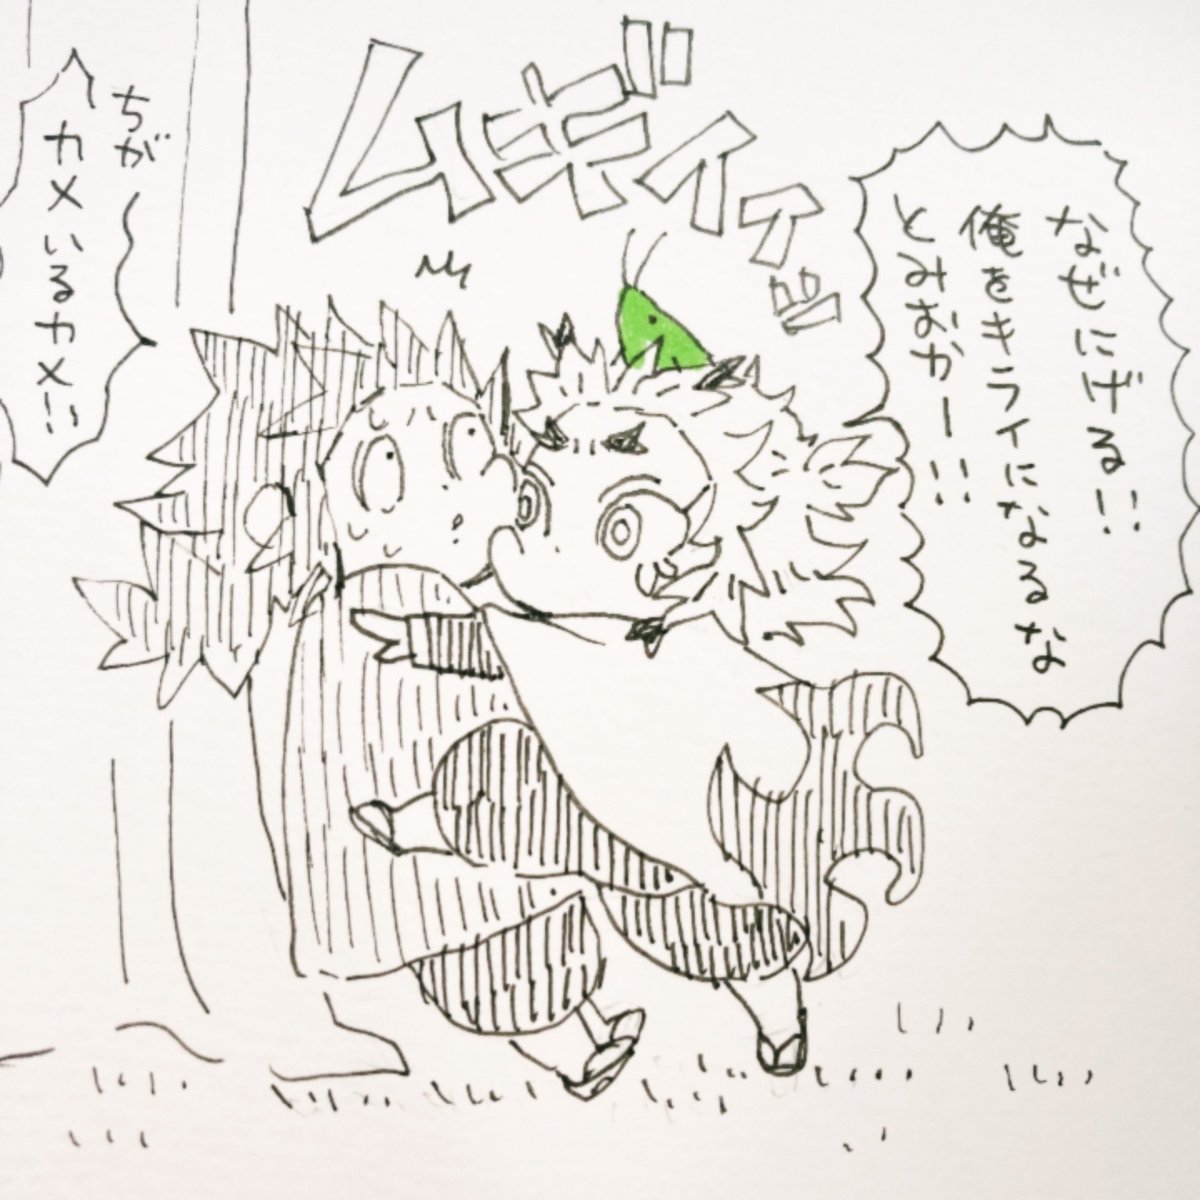 なぜにげる!!
俺をキライになるな
とみおかー!!
ムギィィッ
ちが
カメいるカメ!!